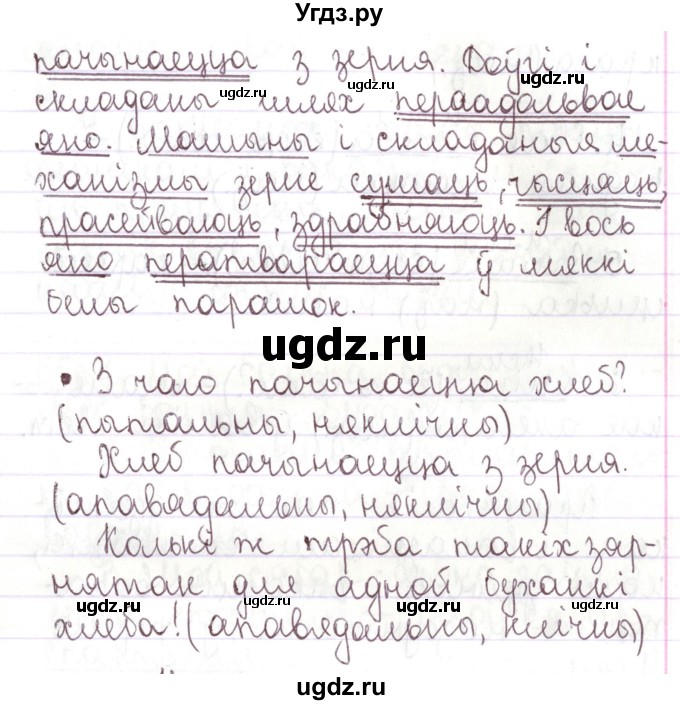 Угдз.ру
пачынаецца з зерня. Доўгі і
складаны шлях пераадольвае
яно. Машыны і складаныя ме-
ханізмы зерне сушаць, чысцяць,
прасейваюць, здрабняюць. І вось
яно ператвараецца ў мяккі
белы парашок.
• З чаго пачынаецца хлеб?
(пытальны, няклічны)
Хлеб пачынаецца з зерня.
(апавядальны, няклічны)
Колькі ж трэба такіх зяр-
нятак для адной буханкі
хлеба! (апавядальны, клічны)
ugdz.ru